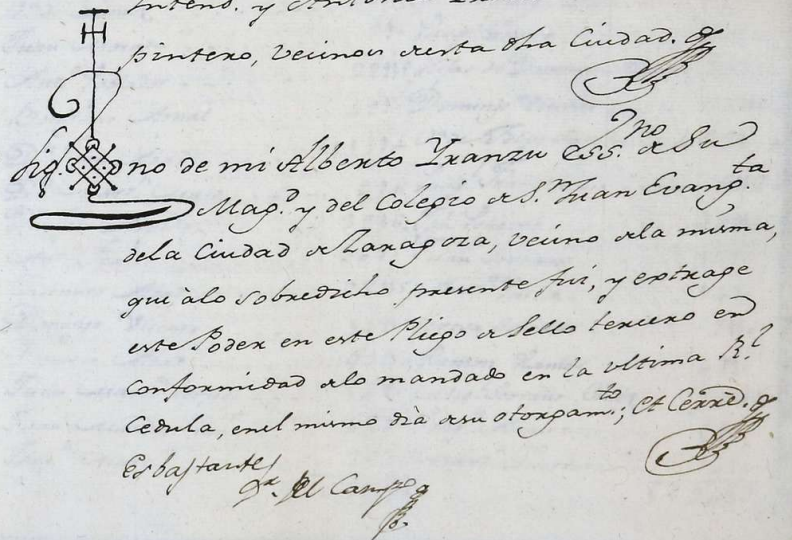 y Antonio
pintero, vecinos de esta dha Ciudad.
Sig no de mi Alberto Yranzu Ess.no de Su
Mag.d y del Colegio de S.n Juan Evang.ta
dela Ciudad de Zaragoza, vecino dela misma,
que àlo sobredicho presente fui, y extrage
este Poder en este Pliego de Sello tercero en
conformidad de lo mandado en la ultima R.l
Cedula, en el mismo dia de su otorgam.to; et Cerrè.
Es bastante
D.r del Campo